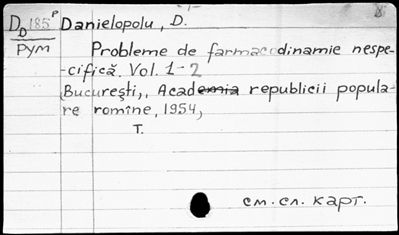 D_D 185^P Danielopolu, D.
Рум
Probleme de farmacodinamie nespe-
-cifică. Vol. 1-2
București,, Academia republicii popula-
re romîne, 1954,
T.
см. сл. карт.